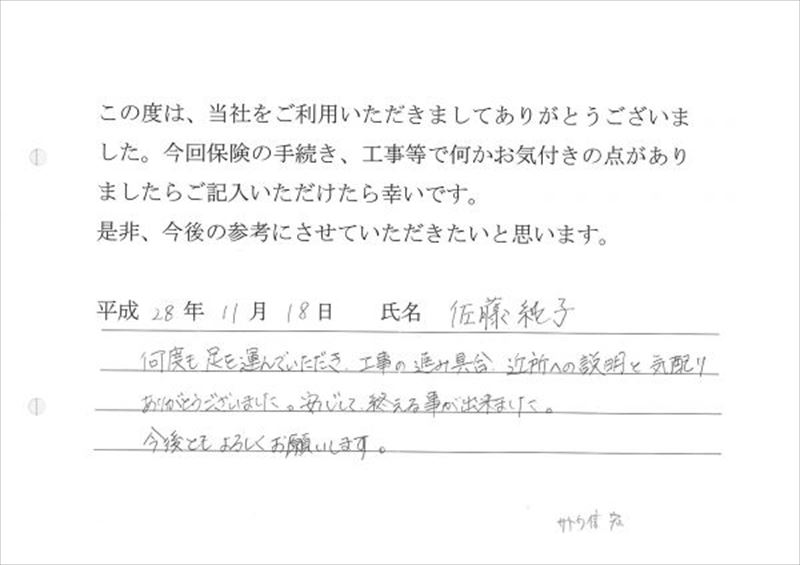 この度は、当社をご利用いただきましてありがとうございま
した。今回保険の手続き、工事等で何かお気付きの点があり
ましたらご記入いただけたら幸いです。
是非、今後の参考にさせていただきたいと思います。
平成 28 年 11 月 18 日 氏名 佐藤純子
何度も足を運んでいただき、工事の進み具合、近所への説明と気配り
ありがとうございました。安心して、終える事が出来ました。
今後ともよろしくお願いします。
サトウ信